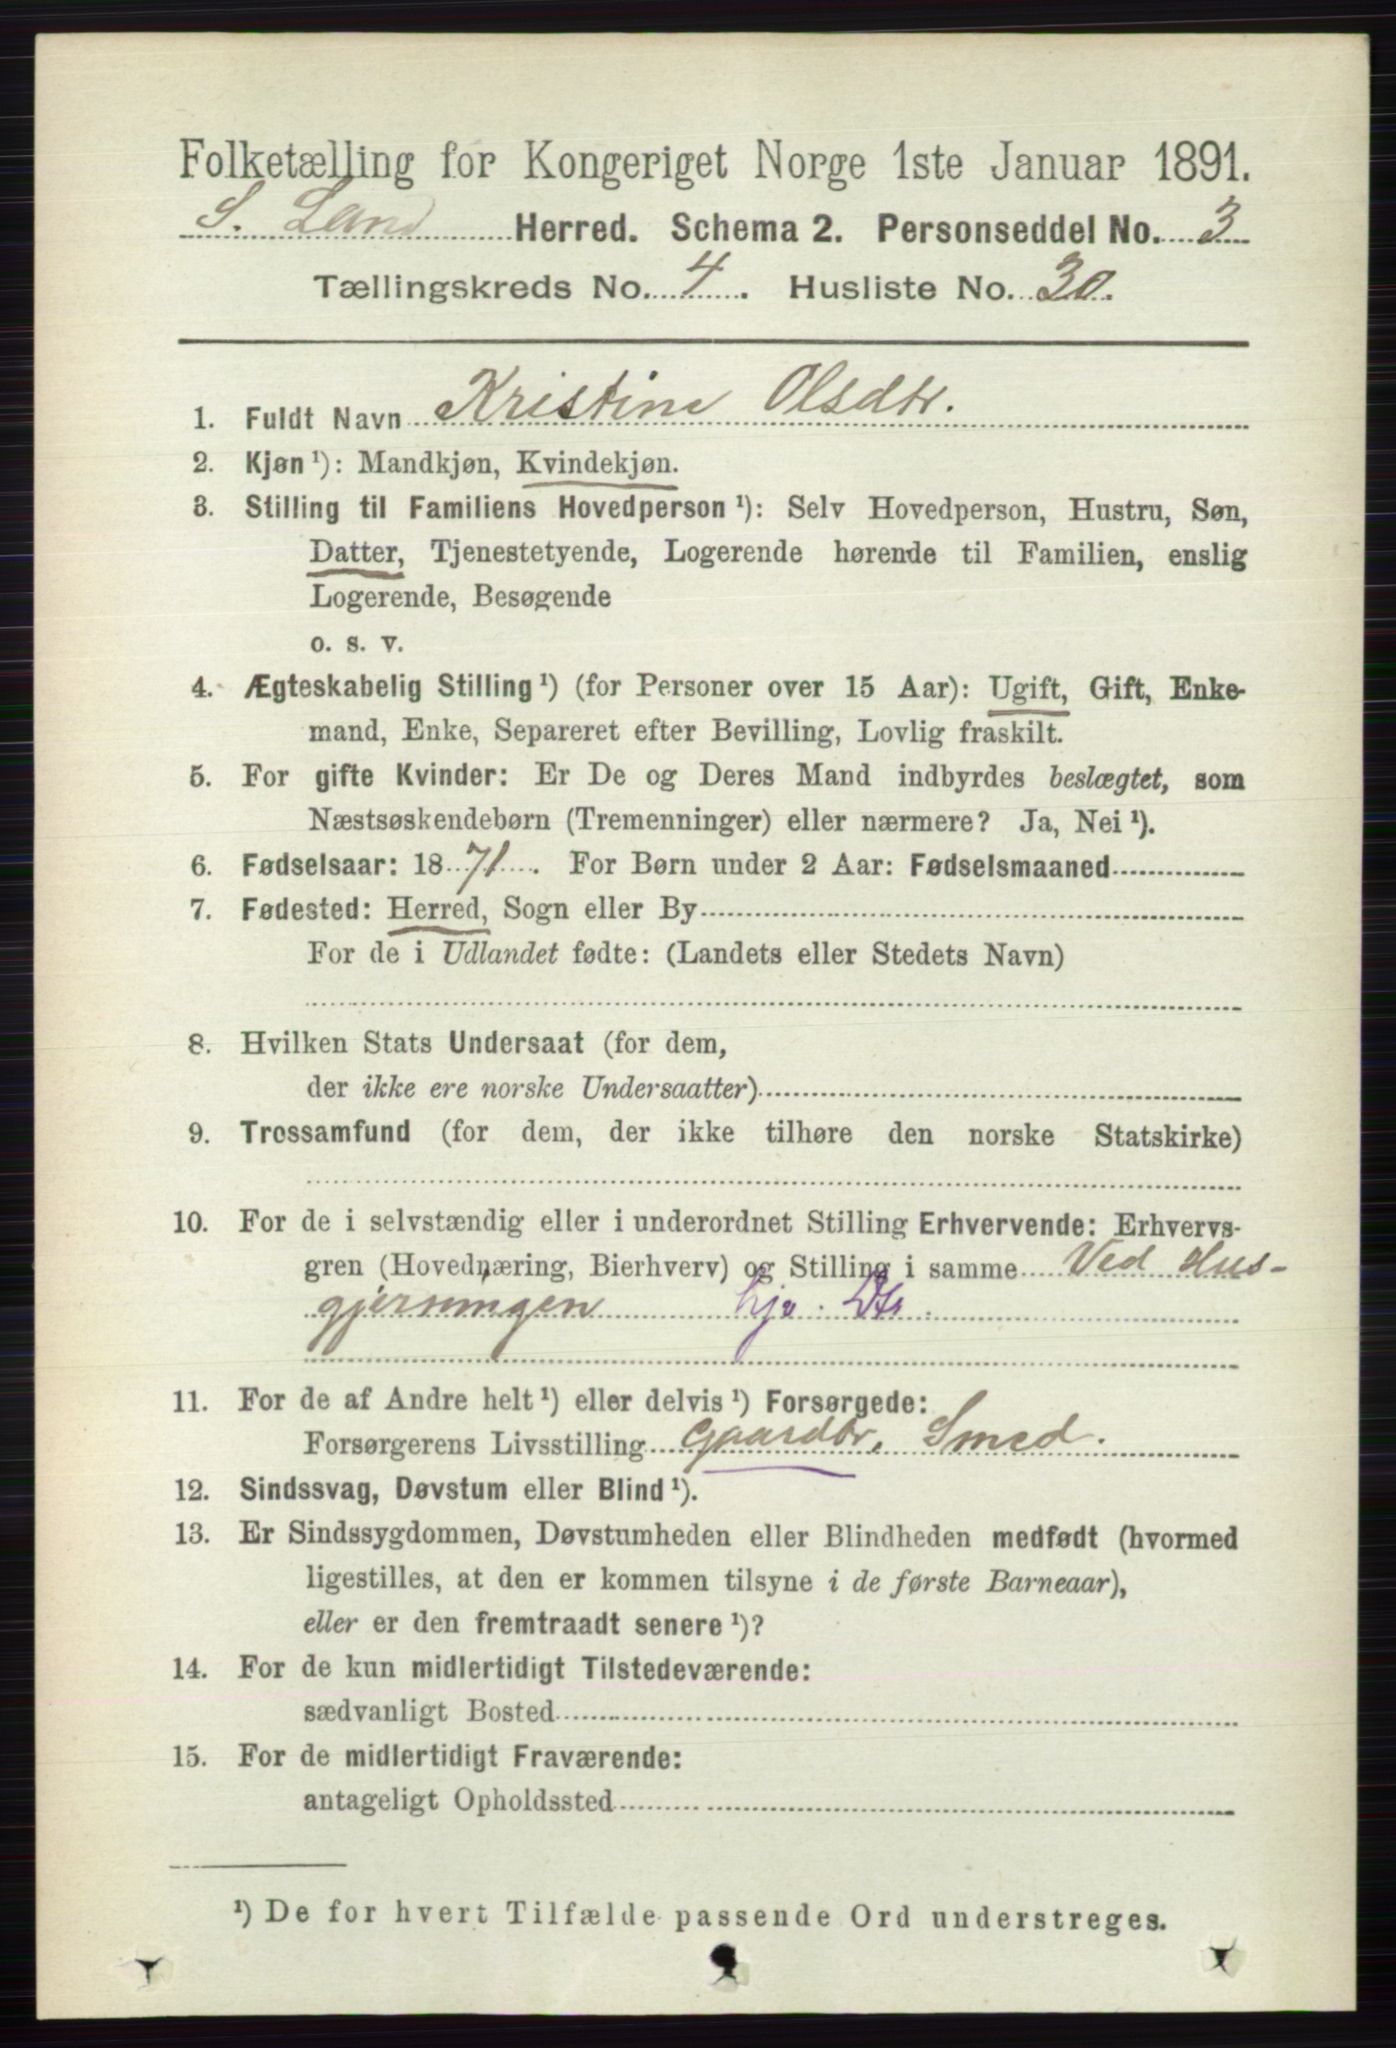 Folketælling for Kongeriget Norge 1ste Januar 1891.
S. Land Herred. Schema 2. Personseddel No. 3
Tællingskreds No. 4. Husliste No. 30.
1. Fuldt Navn Kristine Olsdtr.
2. Kjøn ¹): Mandkjøn, Kvindekjøn.
3. Stilling til Familiens Hovedperson ¹): Selv Hovedperson, Hustru, Søn,
Datter, Tjenestetyende, Logerende hørende til Familien, enslig
Logerende, Besøgende
o. s. v.
4. Ægteskabelig Stilling ¹) (for Personer over 15 Aar): Ugift, Gift, Enke-
mand, Enke, Separeret efter Bevilling, Lovlig fraskilt.
5. For gifte Kvinder: Er De og Deres Mand indbyrdes beslægtet, som
Næstsøskendebørn (Tremenninger) eller nærmere? Ja, Nei ¹).
6. Fødselsaar: 1871. For Børn under 2 Aar: Fødselsmaaned
7. Fødested: Herred, Sogn eller By
For de i Udlandet fødte: (Landets eller Stedets Navn)
8. Hvilken Stats Undersaat (for dem,
der ikke ere norske Undersaatter)
9. Trossamfund (for dem, der ikke tilhøre den norske Statskirke)
10. For de i selvstændig eller i underordnet Stilling Erhvervende: Erhvervs-
gren (Hovednæring, Bierhverv) og Stilling i samme Ved Hus-
gjerningen hjv. Dtr.
11. For de af Andre helt ¹) eller delvis ¹) Forsørgede:
Forsørgerens Livsstilling Gaardbr, Smed.
12. Sindssvag, Døvstum eller Blind ¹).
13. Er Sindssygdommen, Døvstumheden eller Blindheden medfødt (hvormed
ligestilles, at den er kommen tilsyne i de første Barneaar),
eller er den fremtraadt senere ¹)?
14. For de kun midlertidigt Tilstedeværende:
sædvanligt Bosted
15. For de midlertidigt Fraværende:
antageligt Opholdssted
¹) De for hvert Tilfælde passende Ord understreges.